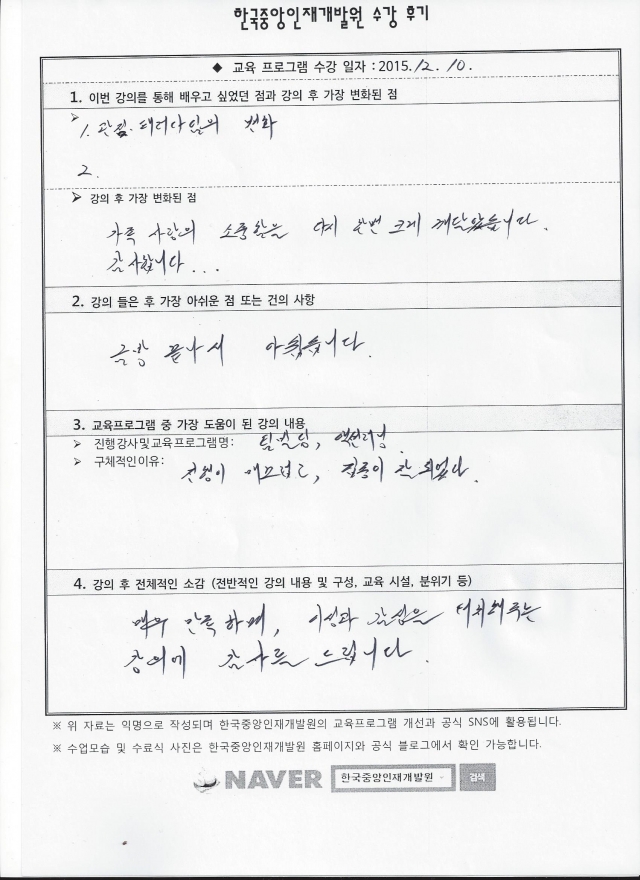 한국중앙인재개발원 수강 후기
◆ 교육 프로그램 수강 일자 : 2015. 12. 10.
1. 이번 강의를 통해 배우고 싶었던 점과 강의 후 가장 변화된 점
➢ 1. 관점. 패러다임의 변화
2.
➢ 강의 후 가장 변화된 점
가족 사랑의 소중함을 다시 한번 크게 깨달았습니다.
감사합니다...
2. 강의 들은 후 가장 아쉬운 점 또는 건의 사항
금방 끝나서 아쉽습니다.
3. 교육프로그램 중 가장 도움이 된 강의 내용
➢ 진행강사및교육프로그램명: 팀빌딩, 액션러닝.
➢ 구체적인이유: 진행이 매끄럽고, 집중이 잘 되었다.
4. 강의 후 전체적인 소감 (전반적인 강의 내용 및 구성, 교육 시설, 분위기 등)
매우 만족하며, 이성과 감성을 터치해주는
강의에 감사를 드립니다.
※ 위 자료는 익명으로 작성되며 한국중앙인재개발원의 교육프로그램 개선과 공식 SNS에 활용됩니다.
※ 수업모습 및 수료식 사진은 한국중앙인재개발원 홈페이지와 공식 블로그에서 확인 가능합니다.
NAVER 한국중앙인재개발원 검색